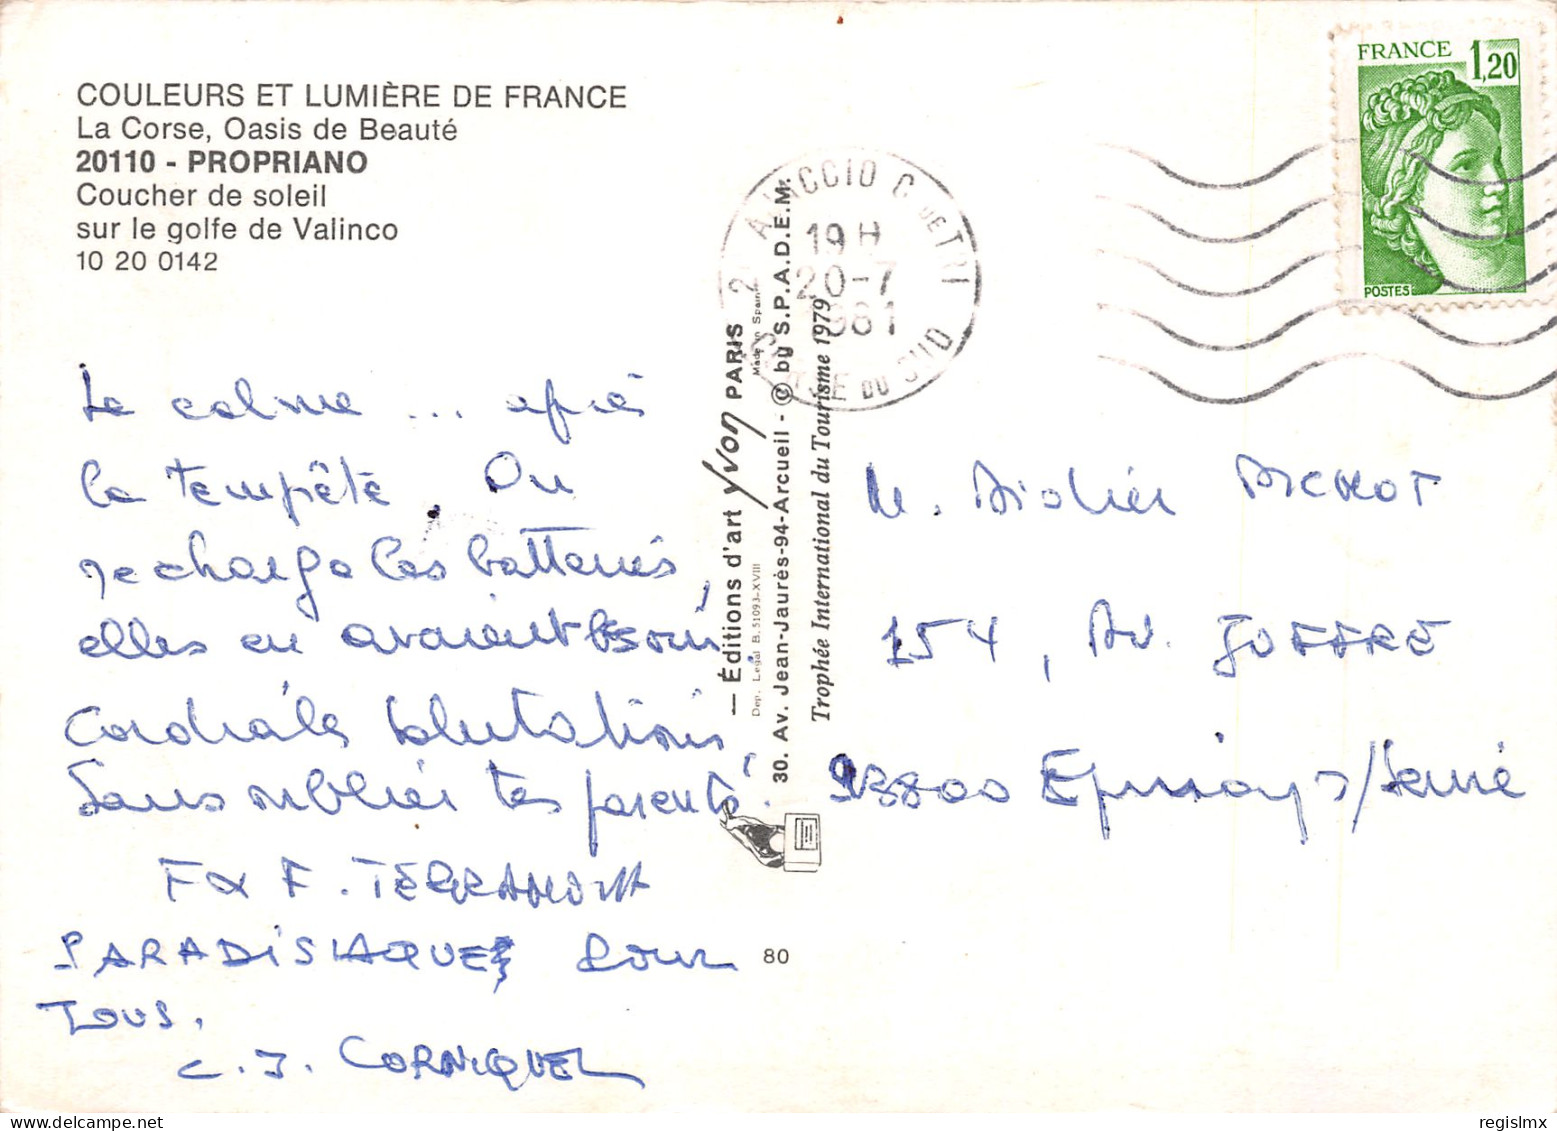 COULEURS ET LUMIÈRE DE FRANCE
La Corse, Oasis de Beauté
20110 - PROPRIANO
Coucher de soleil
sur le golfe de Valinco
10 20 0142
FRANCE 1,20
POSTES
AJACCIO C DE TRI
19 H
20-7
1981
CORSE DU SUD
Le calme ... après
la tempête. On
recharge les batteries,
elles en avaient besoin
Cordiales salutations,
Sans oublier tes parents.
F & F.
PARADISIAQUE pour
TOUS.
C. J. CORNIQUEL
— Éditions d'art yvon PARIS
Made in Spain
Dep. Legal B. 51093-XVIII
30. Av. Jean-Jaurès-94-Arcueil - © by S.P.A.D.E.M.
Trophée International du Tourisme 1979
80
M. Didier PICHOT
154, Av. JOFFRE
93800 Epinay s/Seine
regislmx